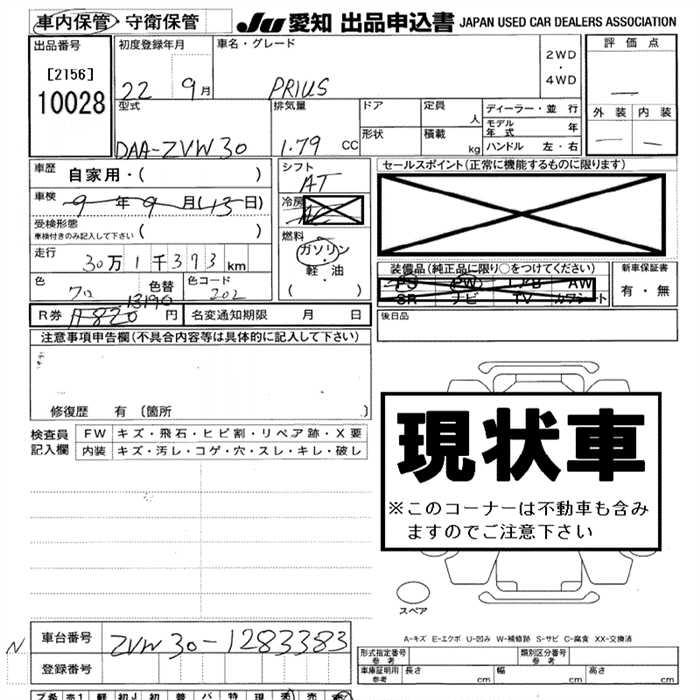 車内保管・守衛保管
JU 愛知 出品申込書 JAPAN USED CAR DEALERS ASSOCIATION
出品番号 初度登録年月 車名・グレード 2WD・4WD 評価点
[2156]
10028
22 9月 PRIUS
型式 排気量 ドア 定員 人 ディーラー・並行 外装 内装
形状 積載 kg モデル年式 年
ハンドル 左・右
DAA-ZVW30 1.79 CC
車歴 自家用・( ) シフト AT セールスポイント(正常に機能するものに限ります)
車検 9年9月(13日) 冷房 AC
受検形態 ( )
車検付きのみ記入して下さい
燃料 ガソリン・軽油・( )
走行 30万1千393km
装備品(純正品に限り○をつけてください) 新車保証書
PS PW エアB AW
SR ナビ TV カワシート
有・無
色 クロ 色替 色コード 202
13190
R券 A820 円 名変通知期限 月 日 後日品
注意事項申告欄(不具合内容等は具体的に記入して下さい)
修復歴 有 [箇所 ]
検査員記入欄 FW キズ・飛石・ヒビ割・リペア跡・X要
内装 キズ・汚レ・コゲ・穴・スレ・キレ・破レ
現状車
※このコーナーは不動車も含みますのでご注意下さい
スペア
A-キズ E-エクボ U-凹み W-補修跡 S-サビ C-腐食 XX-交換済
N 車台番号 ZVW30-1283383
登録番号
形式指定番号 参考 類別区分番号 参考
車庫証明用 参考 長さ cm 幅 cm 高さ cm